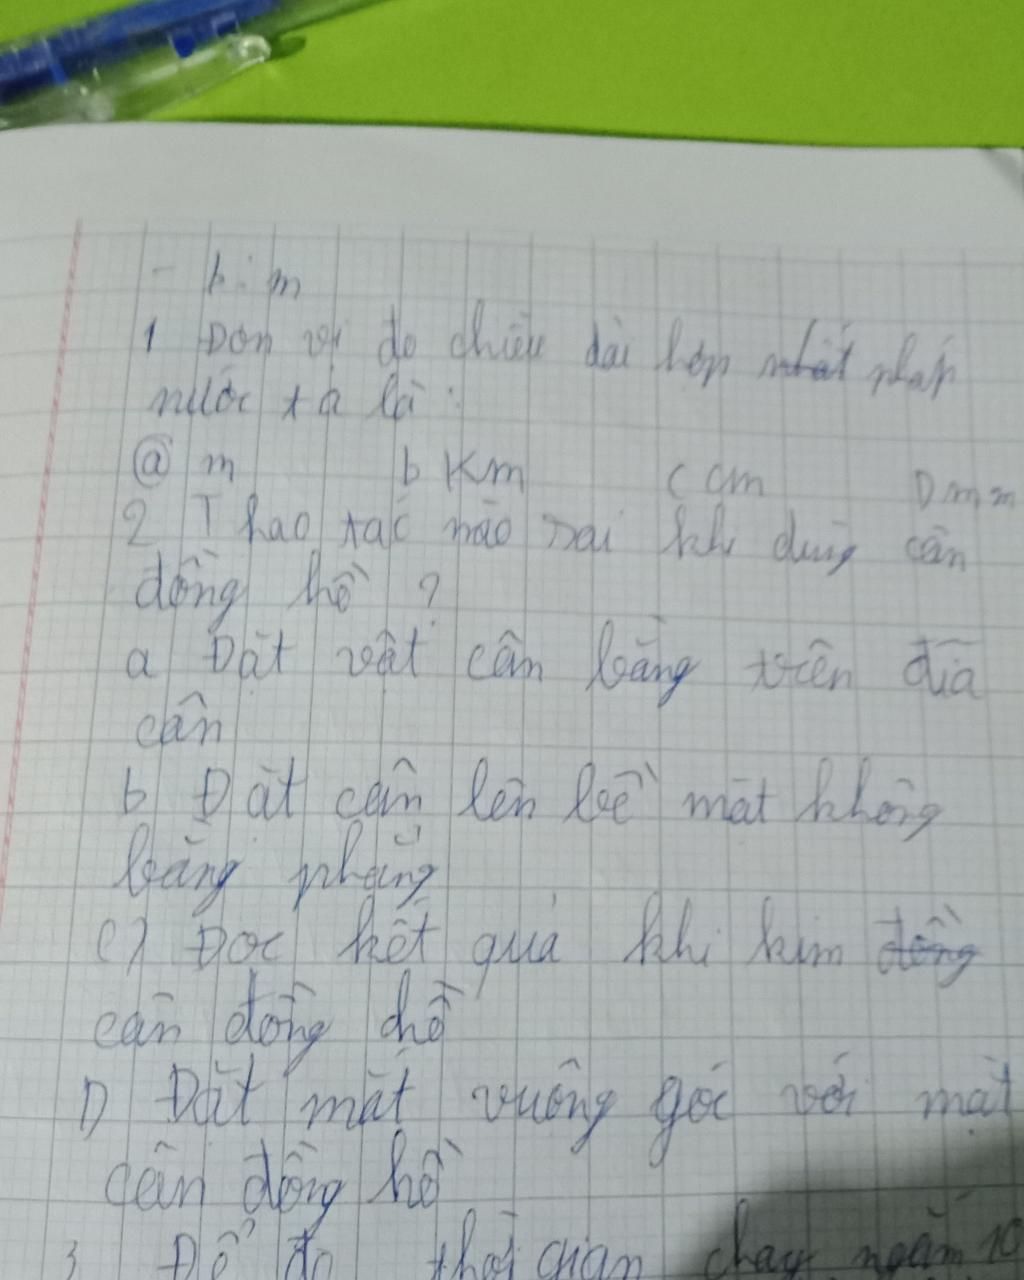 - k: m
1 Đơn vị đo chiều dài hợp nhất pháp
nước ta là :
ⓐ m b Km c cm D mm
2 Thao tác nào sai khi dùng cân
đồng hồ ?
a Đặt vật cân bằng trên đĩa
cân
b Đặt cân lên bề mặt không
bằng phẳng
c) Đọc kết quả khi kim đồng
cân đồng hồ
D Đặt mắt vuông góc với mặt
cân đồng hồ
3 Để đo thời gian chạy ngắn 10